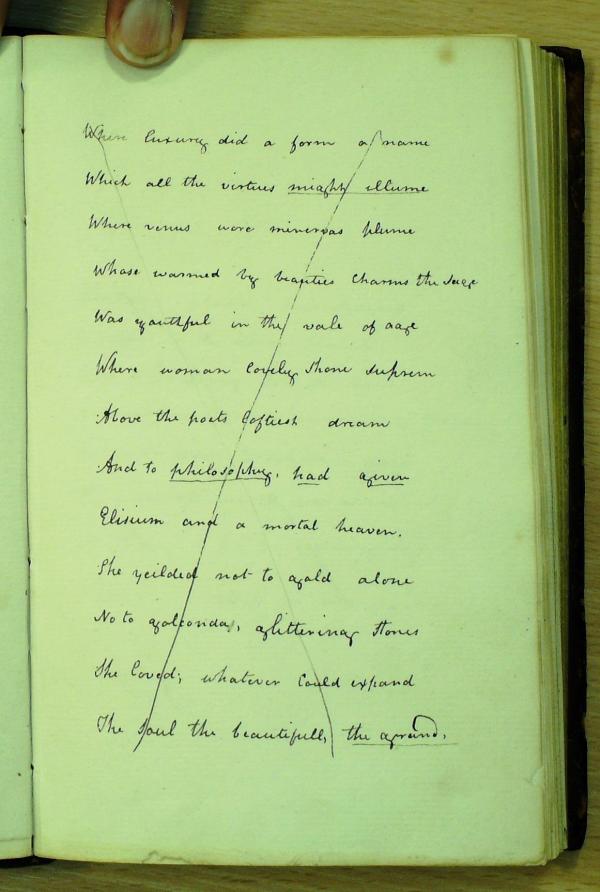 Where luxury did a form a name
Which all the virtues might illume
Where venus wore minervas plume
Whose warmed by beauties charms the sage
Was youthful in the vale of age
Where woman lovely shone suprem
Above the poets loftiest dream
And to philosophy, had given
Elisium and a mortal heaven.
She yeilded not to gold alone
No to golconda, glittering stones
She loved; whatever could expand
The soul the beautifull, the grand,